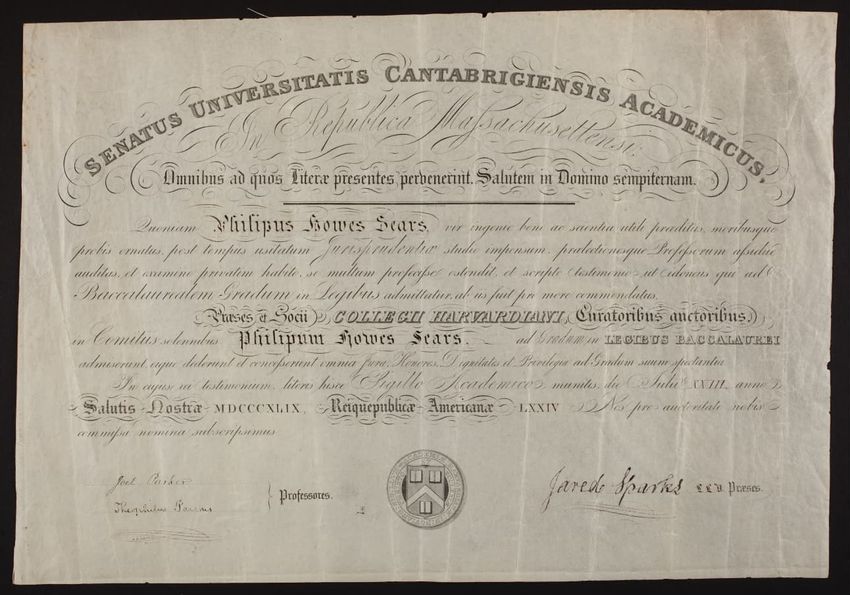 SENATUS UNIVERSITATIS CANTABRIGIENSIS ACADEMICUS,
In Republica Massachusettensi:
Omnibus ad quos Literæ presentes pervenerint, Salutem in Domino sempiternam.
Quoniam Philipus Howes Sears, vir ingenio bono ac scientia utili præditus, moribusque
probis ornatus, post tempus usitatum Jurisprudentiæ studio impensum, prælectionesque Professorum assidue
auditas, et examine privatim habito, se multum profecisse ostendit, et scripto testimonio, ut idoneus qui ad
Baccalaurealem Gradum in Legibus admittatur, ab iis fuit pro more commendatus,
Præses et Socii COLLEGII HARVARDIANI, Curatoribus auctoribus,
in Comitiis solennibus Philipum Howes Sears. ad Gradum in LEGIBUS BACCALAUREI
admiserunt, eique dederunt et concesserunt omnia Jura, Honores, Dignitates et Privilegia ad Gradum suum spectantia
In cujus rei testimonium, literis hisce Sigillo Academico munitis, die Julii XVIII, anno
Salutis Nostræ MDCCCXLIX, Reiquepublicæ Americanæ LXXIV Nos pro auctoritate nobis
commissa nomina subscripsimus
Joel Parker
Theophilus Parsons
Professores.
Jared Sparks LL.D. Præses.